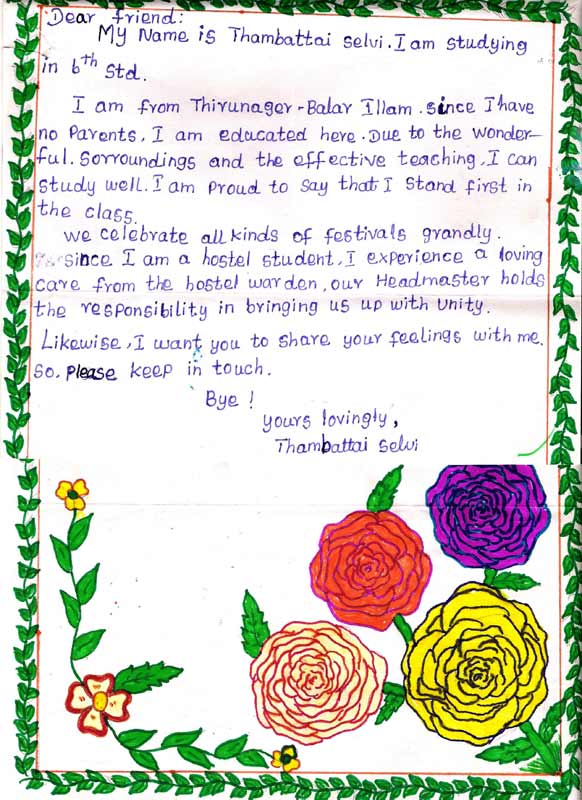 Dear friend:
My Name is Thambattai Selvi. I am studying
in 6th Std.
I am from Thirunager-Balar Illam. since I have
no Parents, I am educated here. Due to the wonder-
ful. Sorroundings and the effective teaching, I can
study well. I am proud to say that I stand first in
the class.
we celebrate all kinds of festivals grandly.
since I am a hostel student, I experience a loving
care from the hostel warden, our Headmaster holds
the responsibility in bringing us up with unity.
Likewise, I want you to share your feelings with me.
So. Please keep in touch.
Bye !
yours lovingly,
Thambattai Selvi